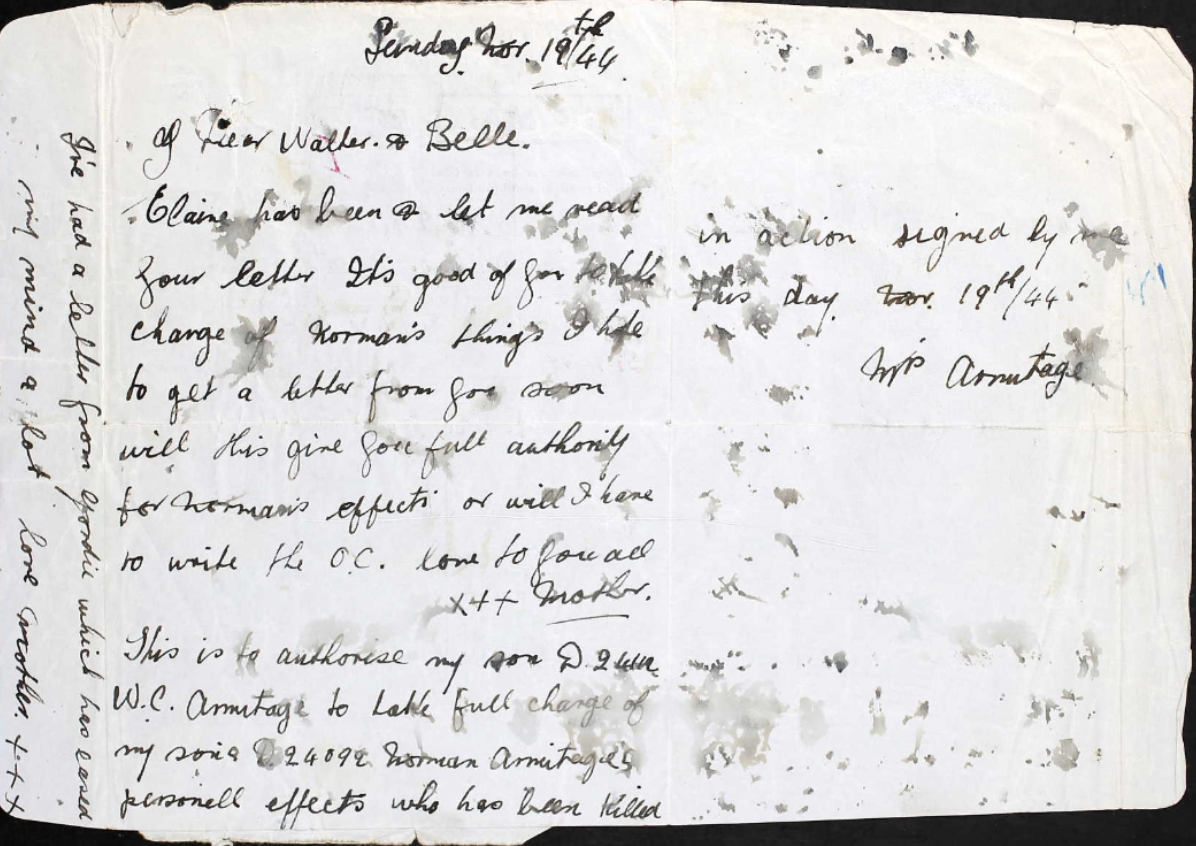 Sunday Nov. 19th/44.
Dear Walter. & Belle.
Elaine has been & let me read
your letter It's good of you to take
charge of Norman's things I hope
to get a letter from you soon
will this give you full authority
for Norman's effects or will I have
to write the O.C. love to you all
x++ Mother.
This is to authorise my son D
W.C. Armitage to take full charge of
my sons D.24092 Norman Armitage's
personell effects who has been Killed
in action signed by me
this day Nov. 19th/44.
Mrs Armitage.
I've had a letter from Gordie which has eased
my mind a lot love Mother. +++